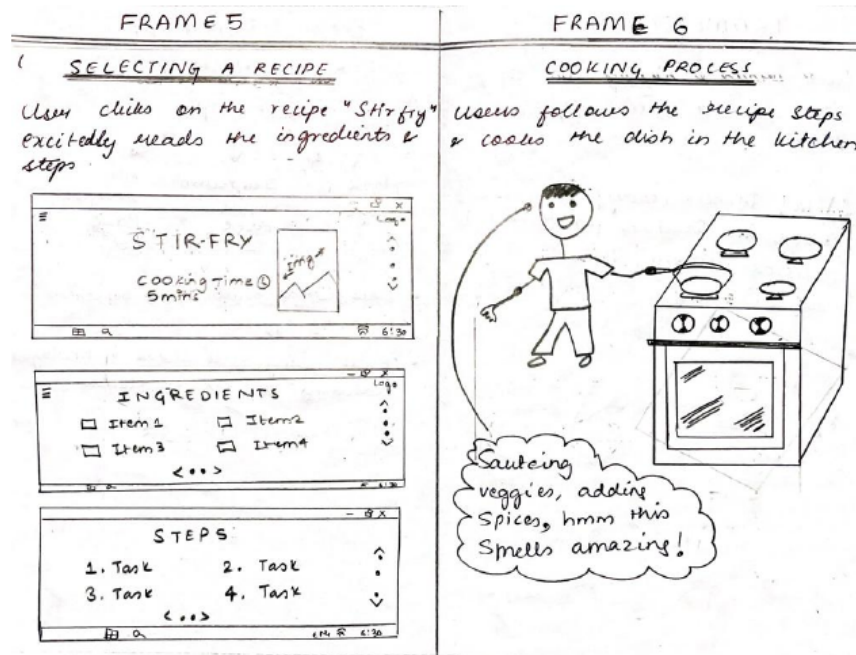 FRAME 5
SELECTING A RECIPE
User clicks on the recipe "Stirfry"
excitedly reads the ingredients &
steps
Logo
STIR-FRY
img
Cooking Time
5mins
6:30
Logo
INGREDIENTS
Item 1 Item 2
Item 3 Item 4
< •• >
6:30
STEPS
1. Task 2. Task
3. Task 4. Task
< ••• >
6:30
FRAME 6
COOKING PROCESS
Users follows the recipe steps
& cooks the dish in the kitchen
Sauteing
veggies, adding
spices, hmm this
smells amazing!